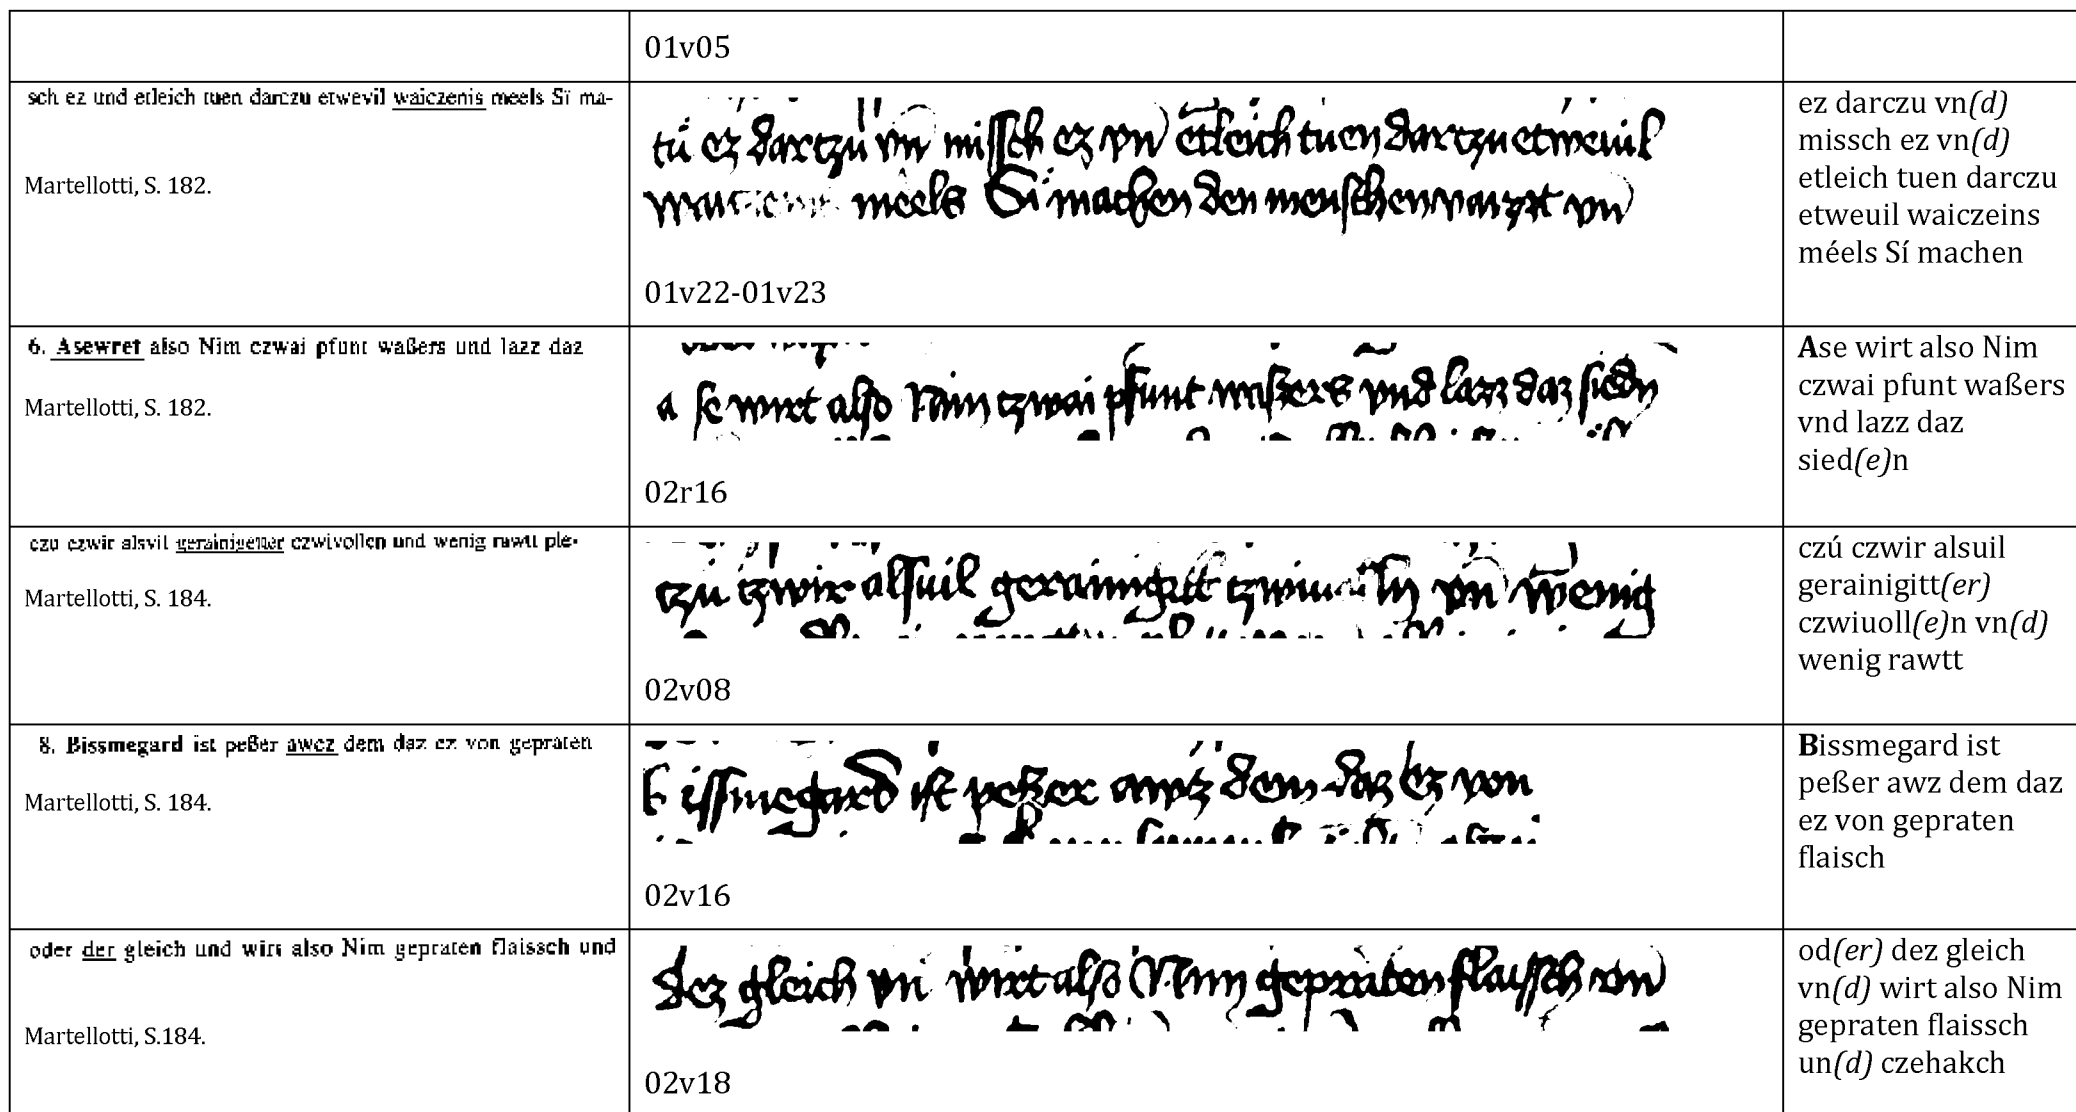 01v05
sch ez und etleich tuen darczu etwevil waiczenis meels Sï ma-
Martellotti, S. 182.
tú ez dartzú vn missch ez vn etleich tuen dartzu etweuil
meels Sí machen den menschen vn
01v22-01v23
ez darczu vn(d)
missch ez vn(d)
etleich tuen darczu
etweuil waiczeins
méels Sí machen
6. Asewret also Nim czwai pfunt waßers und lazz daz
Martellotti, S. 182.
a se wirt also Nim tzwai pfunt waßers vnd lazz daz siedn
02r16
Ase wirt also Nim
czwai pfunt waßers
vnd lazz daz
sied(e)n
czu czwir alsvil gerainigetter czwivollen und wenig rawtt ple-
Martellotti, S. 184.
tzú tzwir alsuil gerainigitt vn wenig
02v08
czú czwir alsuil
gerainigitt(er)
czwiuoll(e)n vn(d)
wenig rawtt
8. Bissmegard ist peßer awcz dem daz ez von gepraten
Martellotti, S. 184.
b issmegard ist peßer awtz dem daz ez von
02v16
Bissmegard ist
peßer awz dem daz
ez von gepraten
flaisch
oder der gleich und wirt also Nim gepraten flaissch und
Martellotti, S.184.
dez gleich vn wirt also Nim gepraten flaissch vn
02v18
od(er) dez gleich
vn(d) wirt also Nim
gepraten flaissch
un(d) czehakch